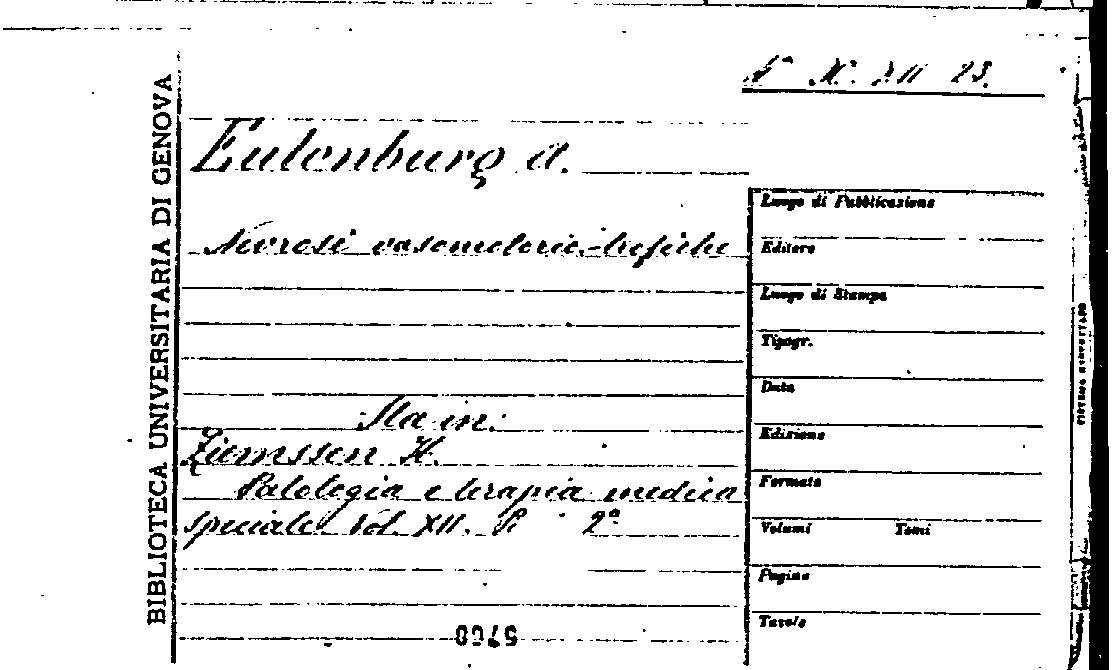 BIBLIOTECA UNIVERSITARIA DI GENOVA
Eulenburg A.
Nevrosi vasomotorie-trofiche
Sta in:
Ziemssen H.
Patologia e terapia medica
speciale Vol. XII. P. 2ª
Luogo di Pubblicazione
Editore
Luogo di Stampa
Tipogr.
Data
Edizione
Formato
Volumi Tomi
Pagine
Tavole